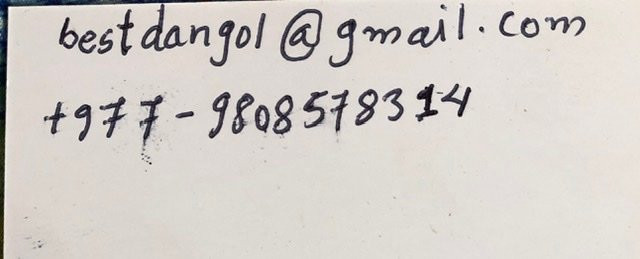 bestdangol@gmail.com
+977-9808578314